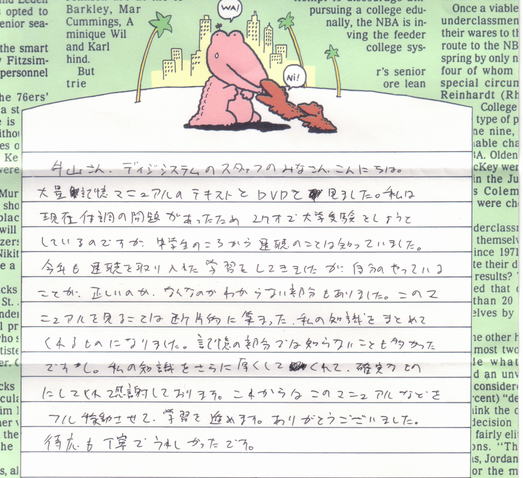 opted to
enior sea-
the smart
y Fitzsim-
personnel
he 76ers'
Barkley, Mar
Cummings, A
minique Wil
and Karl
hind.
But
trie
WA!
Ni!
pursuing a college edu-
nally, the NBA is in-
ving the feeder
college sys-
r's senior
ore lean
Once a viable
underclassmen
their wares to th
route to the NB
spring by only n
four of whom
special circun
Reinhardt (Rh
College
片山さん、ディジシステムのスタッフのみなさん、こんにちは。
大量記憶マニュアルのテキストとDVDを見ました。私は
現在体調の問題があったため 27才で大学受験をしようと
しているのですが、中学生のころから速聴のことは知っていました。
今年も速聴を取り入れた学習をしてきましたが、自分のやっている
ことが、正しいのか、なんなのかわからない部分もありました。このマ
ニュアルを見ることで断片的に集まった、私の知識をまとめて
くれるものになりました。記憶の部分では知らないことも多かった
ですし。私の知識をさらに厚くしてくれて、確実なもの
にしてくれて感謝しております。これからはこのマニュアルなどを
フル稼動させて、学習を進めます。ありがとうございました。
待応も丁寧でうれしかったです。